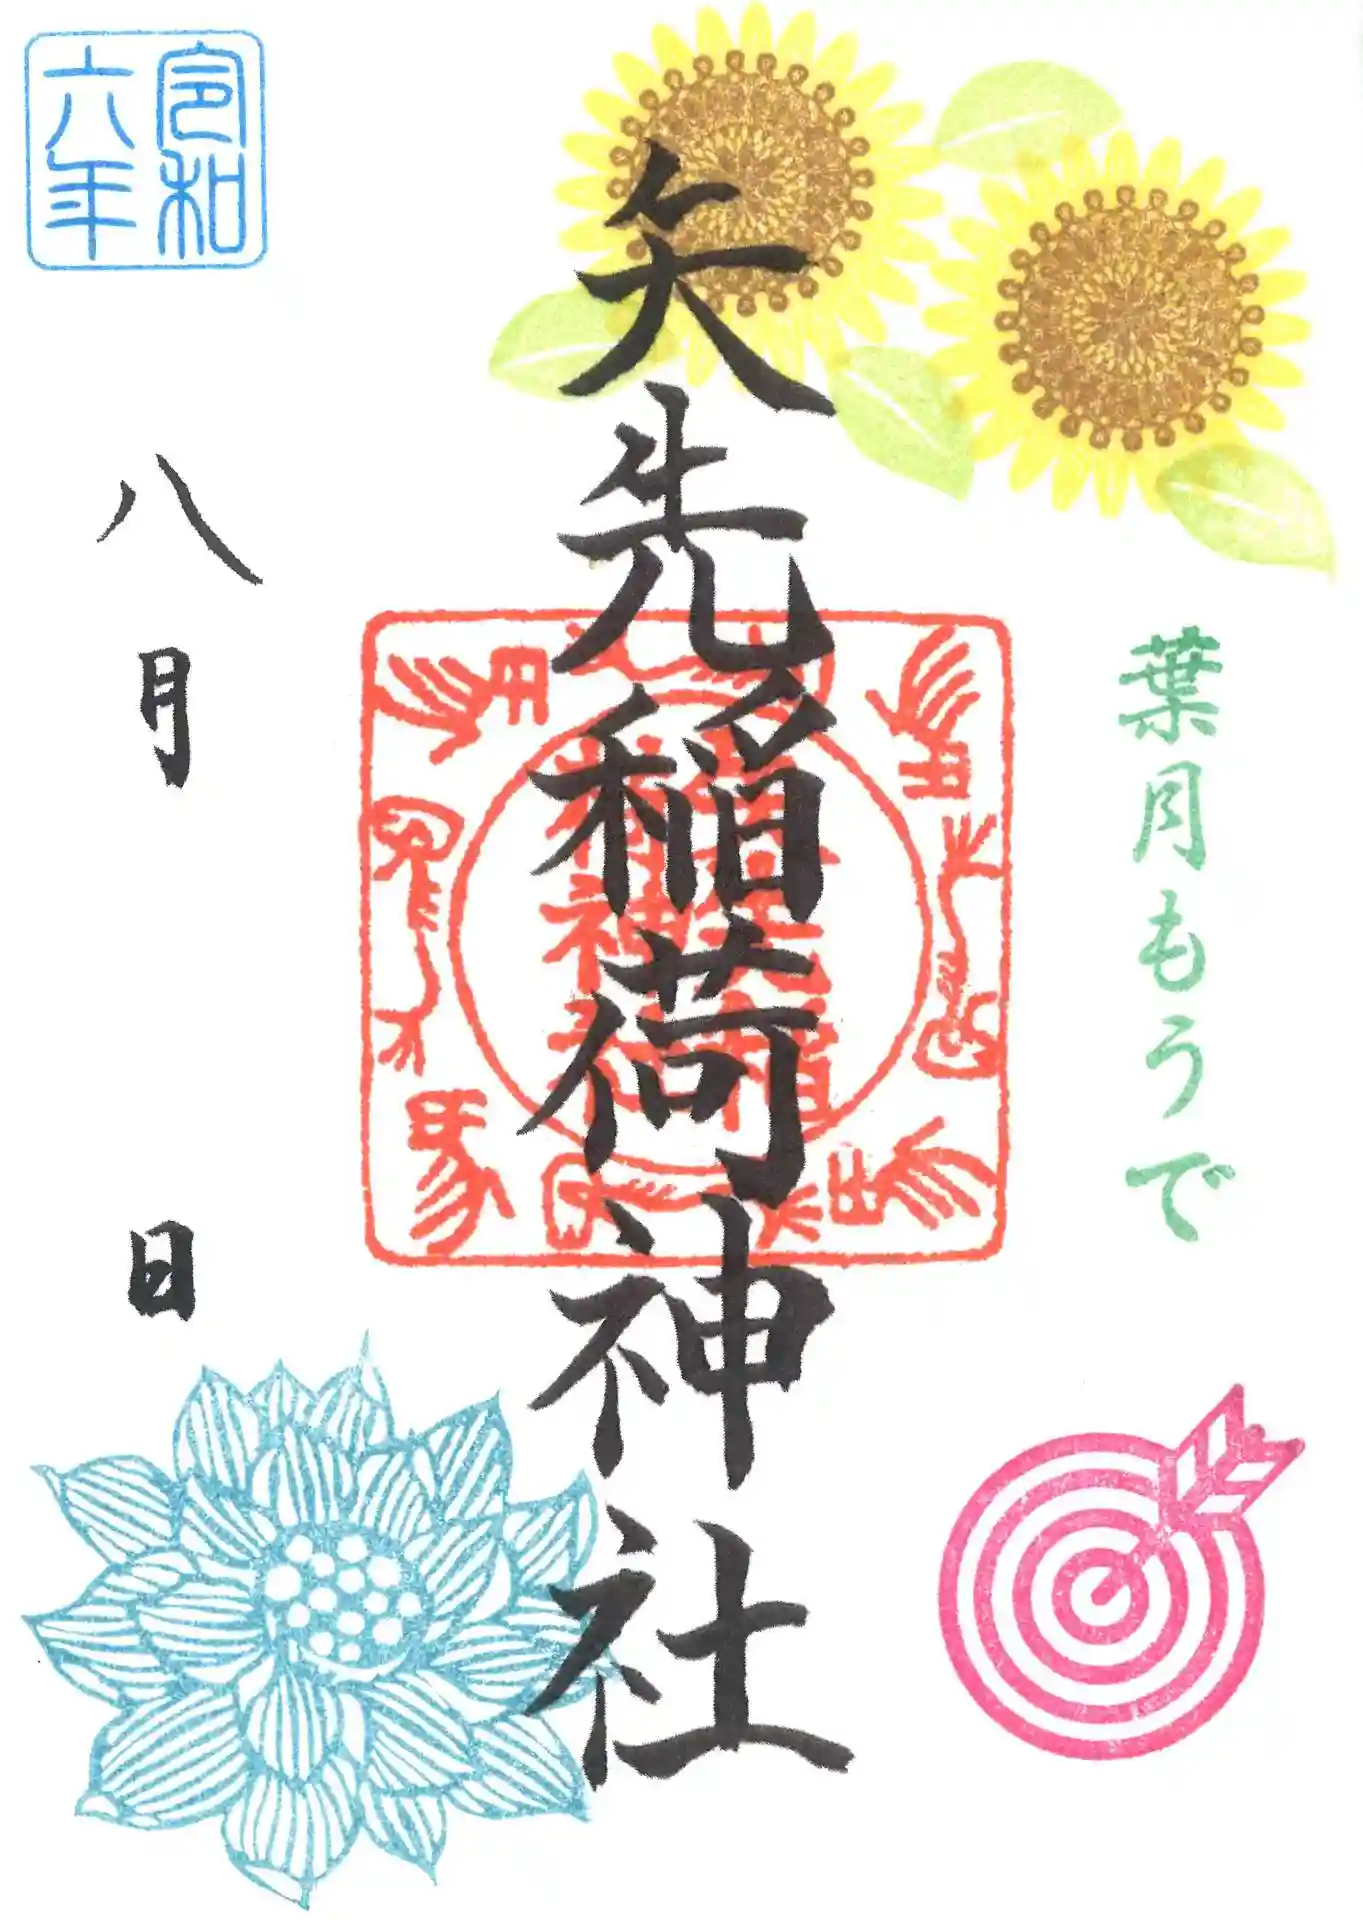 葉月もうで
矢先稲荷神社
令和
六年
八月 日